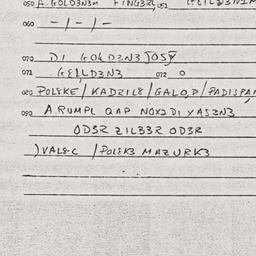 050 A. GOLD3N3M FING3RS 051 G8ILD3N3M
060 - / - / -
070 DI GOLD3N3 JOSY
071 . G8ILD3N3 072 O
080 POLSKE / KADZIL8 / GALOP / PADISPAN
090 A. RUMPL QAP NOX2 DI YAS3N3
OD3R ZILB3R OD3R
) VALS-C / POLSK3 MAZURK3